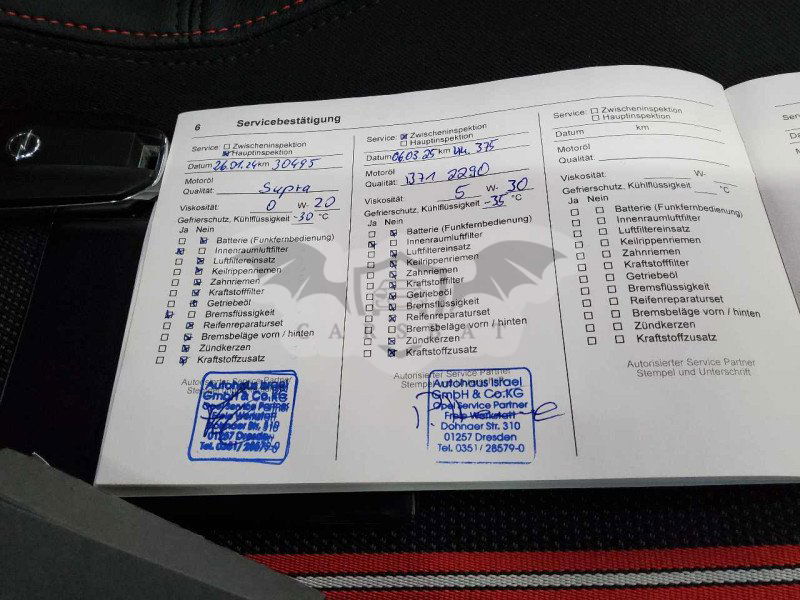 6 Servicebestätigung
Service: Zwischeninspektion
Hauptinspektion
Datum 26.01.24 km 30495
Motoröl
Qualität: Supra
Viskosität: 0 W- 20
Gefrierschutz, Kühlflüssigkeit -30 °C
Ja Nein
Batterie (Funkfernbedienung)
Innenraumluftfilter
Luftfiltereinsatz
Keilrippenriemen
Zahnriemen
Kraftstofffilter
Getriebeöl
Bremsflüssigkeit
Reifenreparaturset
Bremsbeläge vorn / hinten
Zündkerzen
Kraftstoffzusatz
Autorisierter Service Partner
Autohaus Israel
GmbH & Co.KG
Opel Service Partner
Freie Werkstatt
Dohnaer Str. 310
01257 Dresden
Tel. 0351/ 28579-0
Service: Zwischeninspektion
Hauptinspektion
Datum 06.03.25 km 375
Motoröl
Qualität: B71 2290
Viskosität: 5 W- 30
Gefrierschutz, Kühlflüssigkeit -35 °C
Ja Nein
Batterie (Funkfernbedienung)
Innenraumluftfilter
Luftfiltereinsatz
Keilrippenriemen
Zahnriemen
Kraftstofffilter
Getriebeöl
Bremsflüssigkeit
Reifenreparaturset
Bremsbeläge vorn / hinten
Zündkerzen
Kraftstoffzusatz
Autorisierter Service Partner
Autohaus Israel
GmbH & Co.KG
Opel Service Partner
Freie Werkstatt
Dohnaer Str. 310
01257 Dresden
Tel. 0351/ 28579-0
Service: Zwischeninspektion
Hauptinspektion
Datum km
Motoröl
Qualität:
Viskosität: W-
Gefrierschutz, Kühlflüssigkeit °C
Ja Nein
Batterie (Funkfernbedienung)
Innenraumluftfilter
Luftfiltereinsatz
Keilrippenriemen
Zahnriemen
Kraftstofffilter
Getriebeöl
Bremsflüssigkeit
Reifenreparaturset
Bremsbeläge vorn / hinten
Zündkerzen
Kraftstoffzusatz
Autorisierter Service Partner
Stempel und Unterschrift